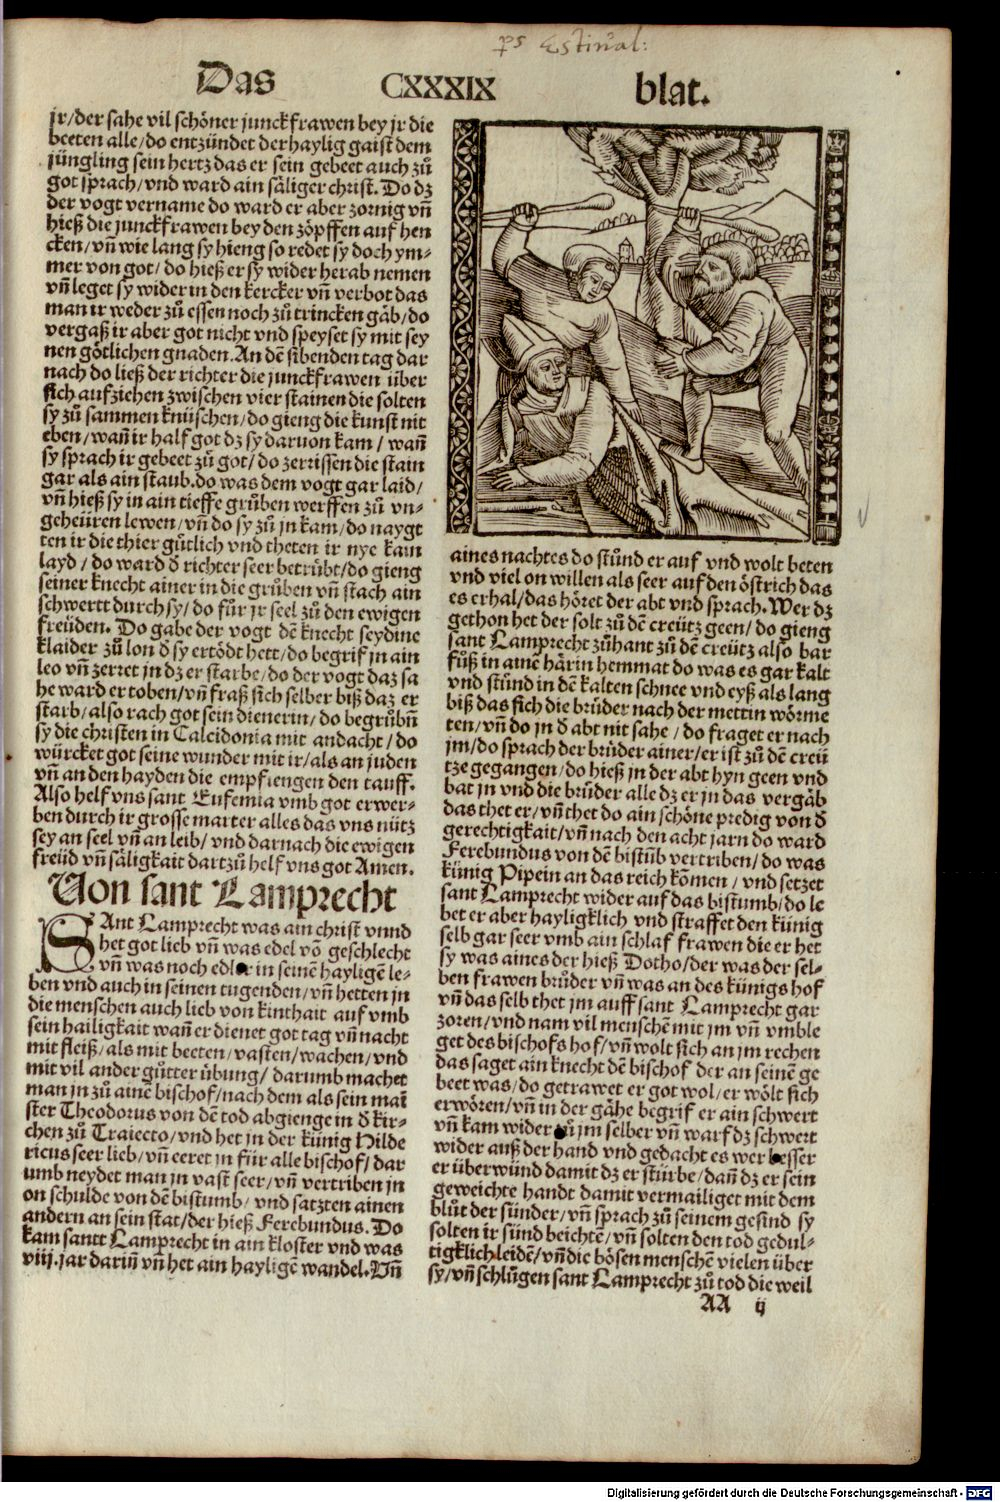 ps Estiual:
Das CXXXIX blat.
jr/der sahe vil schöner junckfrawen bey jr die
beeten alle/do entzündet der haylig gaist dem
jüngling sein hertz das er sein gebeet auch zů
got sprach/vnd ward ain säliger christ. Do dz
der vogt vername do ward er aber zornig vñ
hieß die junckfrawen bey den zöpffen auf hen
cken/vñ wie lang sy hieng so redet sy doch ym-
mer von got/do hieß er sy wider herab nemen
vñ leget sy wider in den kercker vñ verbot das
man ir weder zů essen noch zů trincken gäb/do
vergaß ir aber got nicht vnd speyset sy mit sey
nen götlichen gnaden. An dē sibenden tag dar
nach do ließ der richter die junckfrawen über
sich aufziehen zwischen vier stainen die solten
sy zů sammen knüschen/do gieng die kunst nit
eben/wañ ir half got dz sy daruon kam/wañ
sy sprach ir gebeet zů got/do zerrissen die stain
gar als ain staub. do was dem vogt gar laid/
vñ hieß sy in ain tieffe grůben werffen zů vn-
geheüren lewen/vñ do sy zů jn kam/do naygt
ten ir die thier gůtlich vnd theten ir nye kain
layd/do ward d̄ richter seer betrübt/do gieng
seiner knecht ainer in die grůben vñ stach ain
schwertt durch sy/do fůr jr seel zů den ewigen
freüden. Do gabe der vogt dē knecht seydine
klaider zů lon d̄ sy ertödt hett/do begrif jn ain
leo vñ zerret jn dz er starbe/do der vogt daz sa
he ward er toben/vñ fraß sich selber biß daz er
starb/also rach got sein dienerin/do begrůbñ
sy die christen in Calcidonia mit andacht/do
würcket got seine wunder mit ir/als an juden
vñ an den hayden die empfiengen den tauff.
Also helf vns sant Eufemia vmb got erwer-
ben durch ir grosse marter alles das vns nütz
sey an seel vñ an leib/vnd darnach die ewigen
freüd vñ säligkait dartzů helf vns got Amen.
Von sant Lamprecht
SAnt Lamprecht was ain christ vnnd
het got lieb vñ was edel vō geschlecht
vñ was noch edler in seinē hayligē le-
ben vnd auch in seinen tugenden/vñ hetten jn
die menschen auch lieb von kinthait auf vmb
sein hailigkait wañ er dienet got tag vñ nacht
mit fleiß/als mit beeten/vasten/wachen/vnd
mit vil ander gůtter übung/darumb machet
man jn zů ainē bischof/nach dem als sein mai
ster Theodorus von dē tod abgienge in d̄ kir-
chen zů Traiecto/vnd het jn der künig Hilde
ricus seer lieb/vñ eeret jn für alle bischof/dar
umb neydet man jn vast seer/vñ vertriben jn
on schulde von dē bistumb/vnd satzten ainen
andern an sein stat/der hieß Ferebundus. Do
kam santt Lamprecht in ain kloster vnd was
viij. jar dariñ vñ het ain hayligē wandel. Vñ
aines nachtes do stůnd er auf vnd wolt beten
vnd viel on willen als seer auf den östrich das
es erhal/das höret der abt vnd sprach. Wer dz
gethon het der solt zů dē creütz geen/do gieng
sant Lamprecht zůhant zů dē creütz also bar
fůß in ainē härin hemmat do was es gar kalt
vnd stůnd in dē kalten schnee vnd eyß als lang
biß das sich die brüder nach der mettin wörme
ten/vñ do jn d̄ abt nit sahe/do fraget er nach
jm/do sprach der brüder ainer/er ist zů dē creü
tze gegangen/do hieß jn der abt hyn geen vnd
bat jn vnd die brüder alle dz er jn das vergäb
das thet er/vñ thet do ain schöne predig von d̄
gerechtigkait/vñ nach den acht jarn do ward
Ferebundus von dē bistūb vertriben/do was
künig Pipein an das reich kōmen/vnd setzet
sant Lamprecht wider auf das bistumb/do le
bet er aber hayligklich vnd straffet den künig
selb gar seer vmb ain schlaf frawen die er het
sy was aines der hieß Dotho/der was der sel-
ben frawen brůder vñ was an des künigs hof
vñ das selb thet jm auff sant Lamprecht gar
zoren/vnd nam vil menschē mit jm vñ vmble
get des bischofs hof/vñ wolt sich an jm rechen
das saget ain knecht dē bischof der an seinē ge
beet was/do getrawet er got wol/er wölt sich
erwören/vñ in der gähe begrif er ain schwert
vñ kam wider zů jm selber vñ warf dz schwert
wider auß der hand vnd gedacht es wer besser
er überwünd damit dz er stürbe/dañ dz er sein
geweichte handt damit vermailiget mit dem
blůt der sünder/vñ sprach zů seinem gesind sy
solten ir sünd beichtē/vñ solten den tod gedul-
tigklich leidē/vñ die bösen menschē vielen über
sy/vñ schlůgen sant Lamprecht zů tod die weil
AA ij
Digitalisierung gefördert durch die Deutsche Forschungsgemeinschaft - DFG